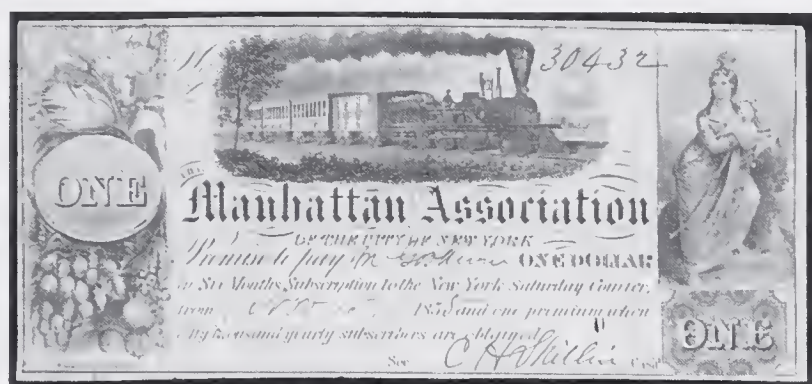 30432
ONE
THE
Manhattan Association
OF THE CITY OF NEW YORK
Promise to pay ONE DOLLAR
or Six Months Subscription to the New York Saturday Courier,
from 185 and one premium when
thousand yearly subscribers are obtained
ONE
Sec C H